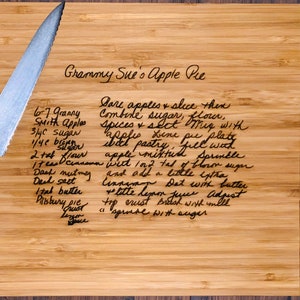 Grammy Sue's Apple Pie
6-7 Granny
Smith Apples
3/4c sugar
1/4c brown
sugar
2 tbsp flour
1 tsp cinnamon
Dash nutmeg
Dash salt
1 tbsp butter
Pastry pie
crust
lemon
juice
Pare apples & slice then
combine sugar, flour,
spices & salt Mix with
apples Line pie plate
with pastry, fill with
apple mixture Sprinkle
and add a little extra
cinnamon Dot with butter
+ little lemon juice Adjust
top crust Brush with milk
+ sprinkle with sugar